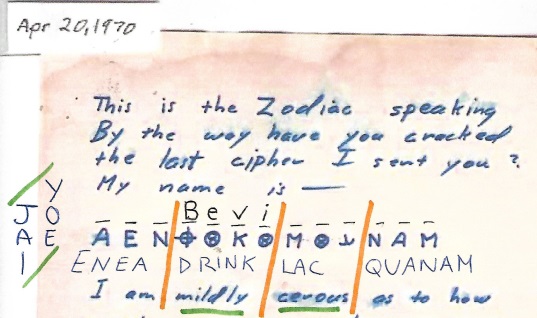 Apr 20, 1970
This is the Zodiac speaking
By the way have you cracked
the last cipher I sent you?
My name is —
Y
O
E
J
A
I
Bevi
A E N ⌖ ⊗ K ⊗ M ⊗ ⅃ N A M
ENEA DRINK LAC QUANAM
I am mildly cerous as to how